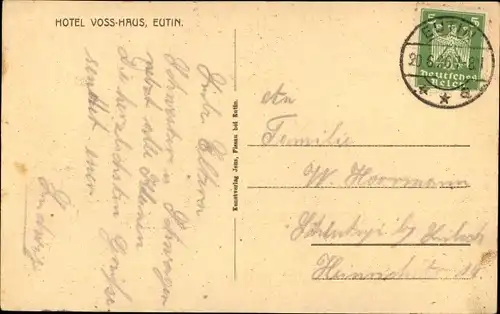 HOTEL VOSS-HAUS, EUTIN.
Liebe Eltern
Schwestern u. Schwager
nebst alle Kleinen
Die herzlichsten Grüße
sendet euer
Ludwig
Kunstverlag Jens, Plenau bei Eutin.
EUTIN
20.6.
5 5
Deutsches
Reich
An
Familie
W. Horrmann
Heinrichstr.